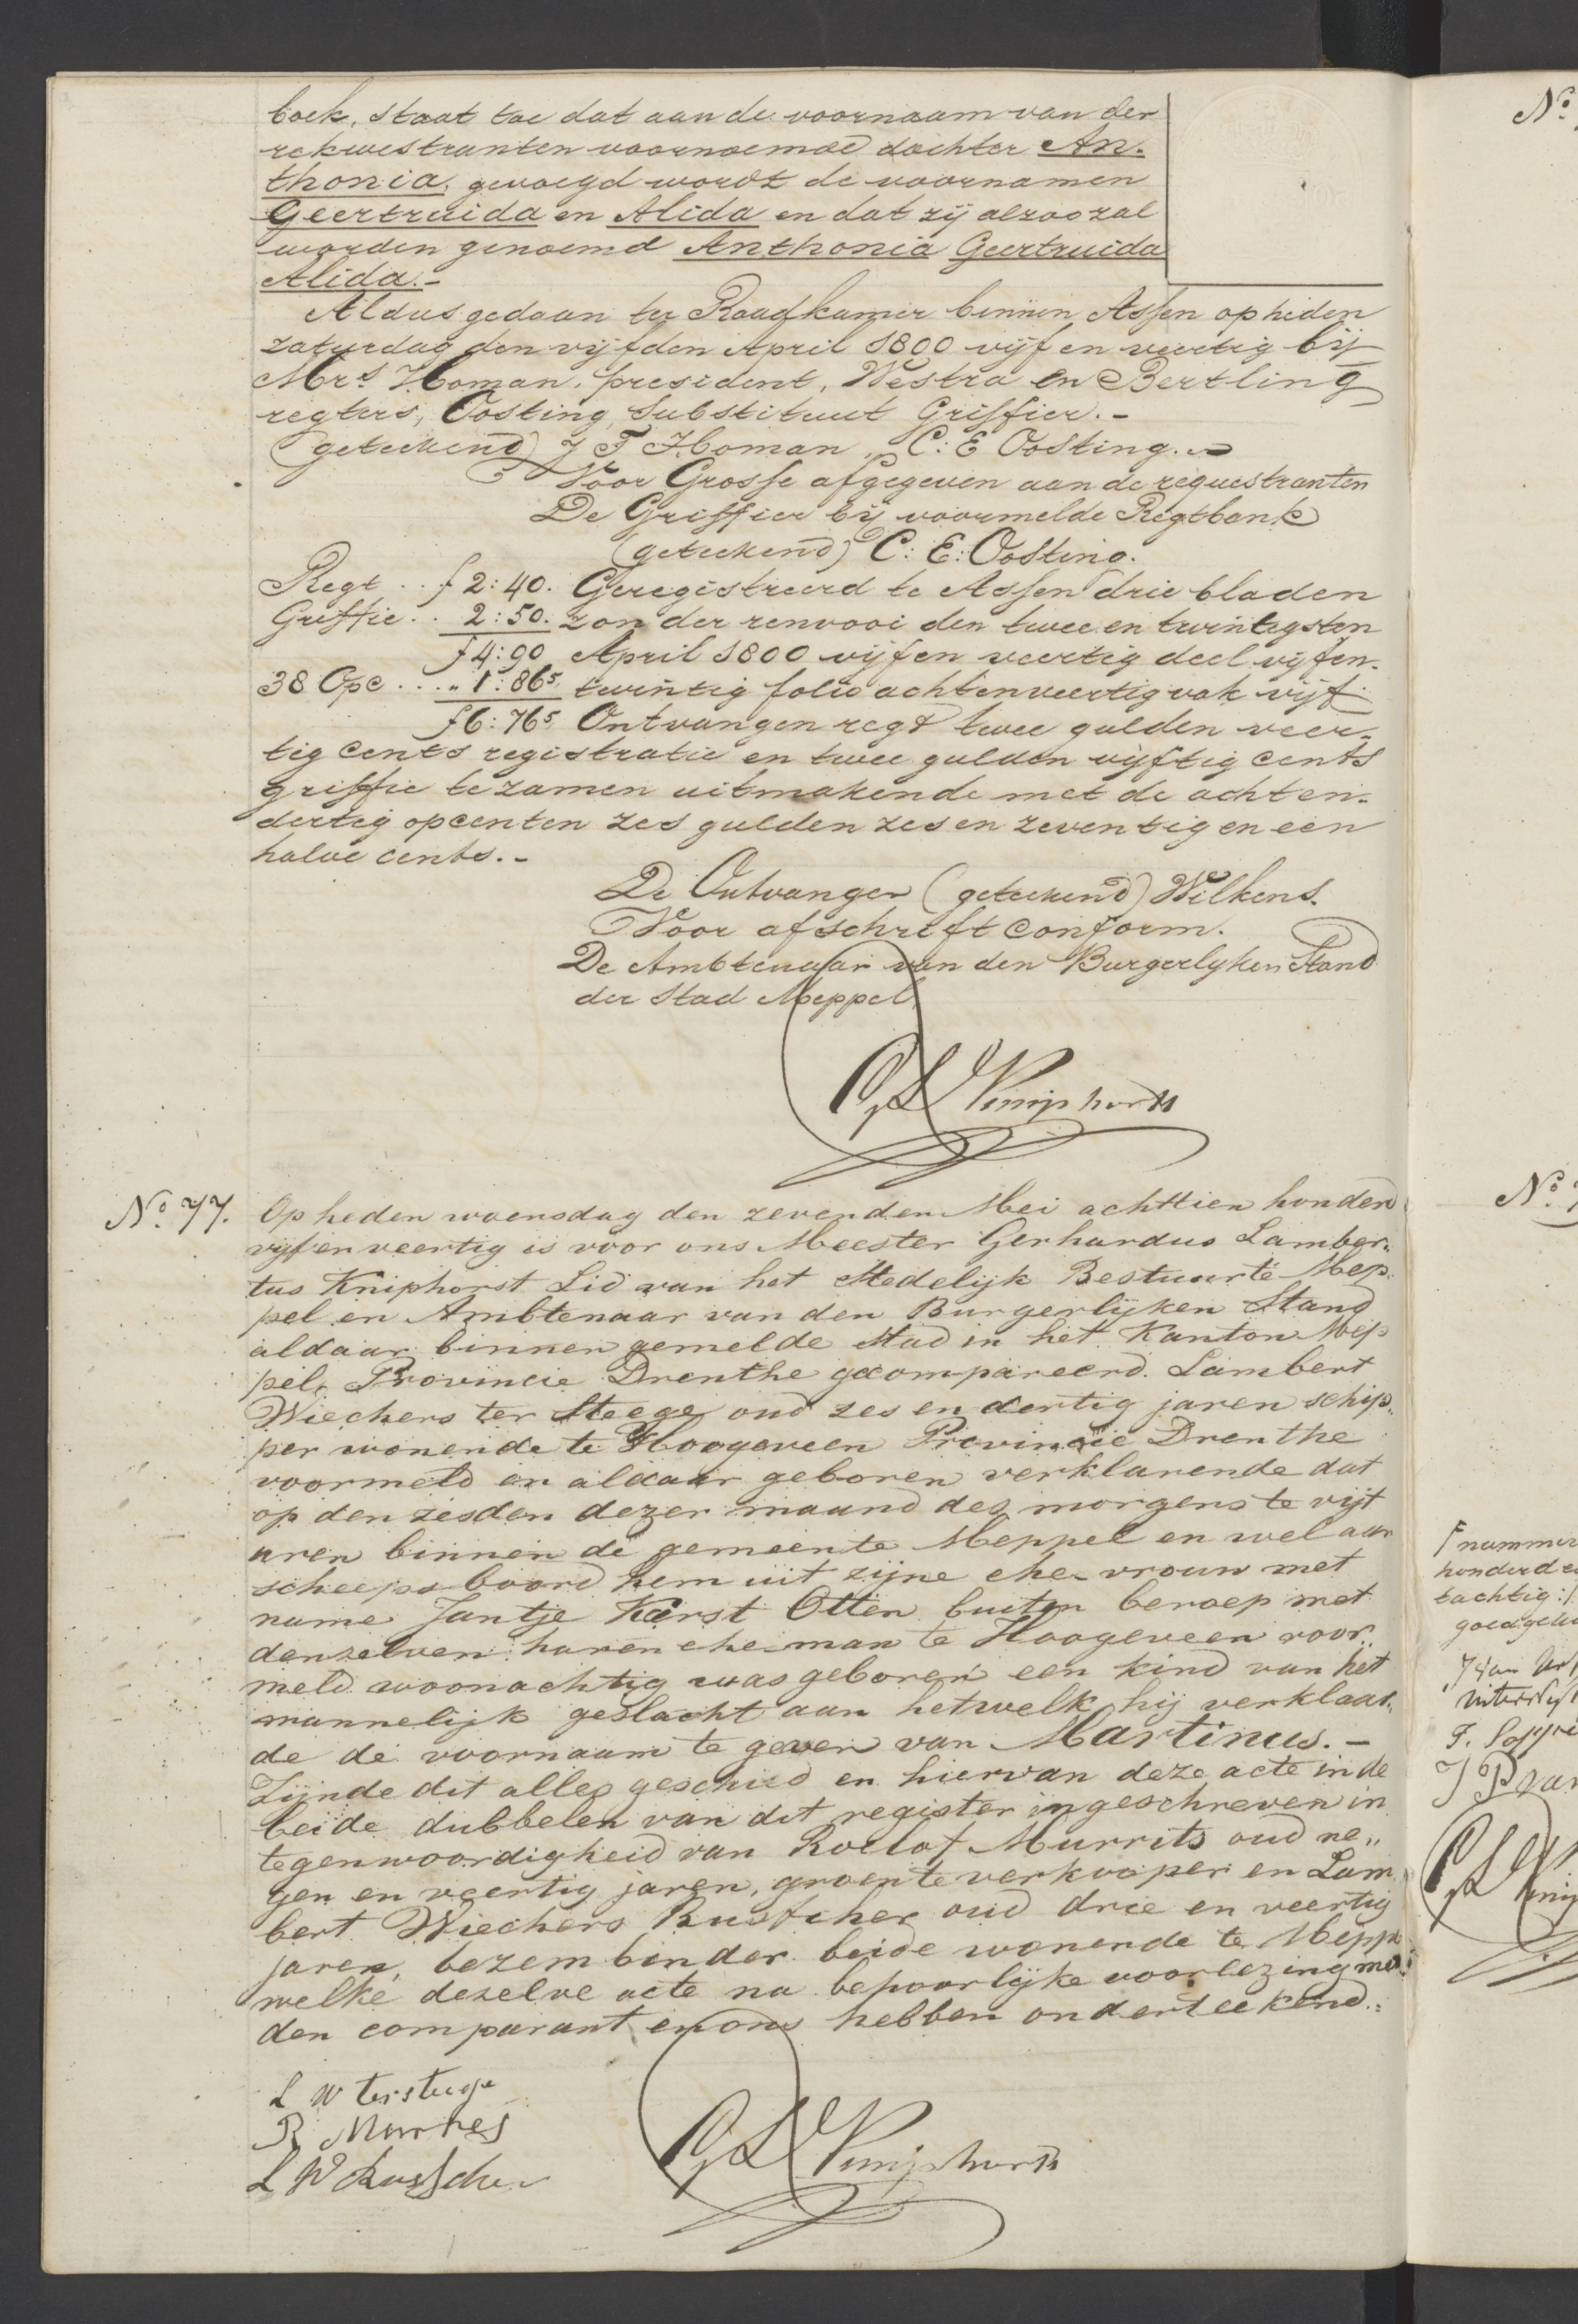 boek, staat toe dat aan de voornaam van der
rekwestranten voornoemde dochter An-
thonia, gevoegd wordt de voornamen
Geertruida en Alida en dat zij alzoo zal
worden genoemd Anthonia Geertruida
Alida.-
Aldus gedaan ter Raadkamer binnen Assen op heden
zaturdag den vijfden April 1800 vijf en veertig bij
Mrs Homan, president, Westra en Bertling
regters, Oosting, Substituut Griffier.-
(geteekend) J T Homan, C: E Oosting.-
Voor Grosse afgegeven aan de requestranten
De Griffier bij voormelde Regtbank
(geteekend) C: E: Oosting.
Regt .. f 2:40. Geregistreerd te Assen drie bladen
Griffie .. 2:50. zonder renvooi den twee en twintigsten
f 4:90 April 1800 vijf en veertig deel vijf en-
38 Opc .... " 1:86⁵ twintig folio acht en veertig vak vijf.
f 6:76⁵ Ontvangen regt twee gulden veer-
tig cents registratie en twee gulden vijftig cents
griffie te zamen uitmakende met de acht en-
dertig opcenten zes gulden zes en zeventig en een
halve cents.-
De Ontvanger (geteekend) Wilkens.
Voor afschrift conform.
De Ambtenaar van den Burgerlyken Stand
der Stad Meppel
G L Kniphorst
No. 77. Op heden woensdag den zevenden Mei achttien honderd
vijf en veertig is voor ons Meester Gerhardus Lamber-
tus Kniphorst Lid van het Stedelijk Bestuur te Mep-
pel en Ambtenaar van den Burgerlijken Stand
aldaar binnen gemelde Stad in het Kanton Mep
pel, Provincie Drenthe gecompareerd. Lambert
Wiechers ter Steege oud zes en dertig jaren schip-
per wonende te Hoogeveen Provincie Drenthe
voormeld en aldaar geboren verklarende dat
op den zesden dezer maand des morgens te vijf
uren binnen de gemeente Meppel en wel aan
scheepsboord hem uit zijne ehe-vrouw met
name Jantje Karst Otten buiten beroep met
denzelven haren ehe-man te Hoogeveen voor-
meld woonachtig was geboren een kind van het
mannelijk geslacht aan hetwelk hij verklaar-
de de voornaam te geven van Martinus.-
Zijnde dit alles geschied en hiervan deze acte in de
beide dubbelen van dit register ingeschreven in
tegenwoordigheid van Roelof Murrits oud ne"
gen en veertig jaren, groenteverkooper en Lam
bert Wiechers Busscher oud drie en veertig
jaren, bezembinder beide wonende te Meppel
welke dezelve acte na behoorlijke voorlezing met
den comparant en ons hebben onderteekend.:
L W tersteege
R Murres
L W Busscher
G L Kniphorst
No.
No.
nummer
honderd e
tachtig:/